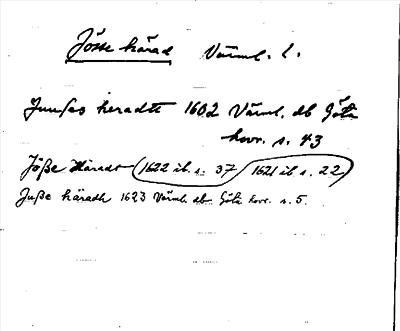 Jösse härad Värml. l.
Junses heradtt 1602 Värml. db Göta
hovr. s. 43
Jöße Häradt (1622 ib. s. 37) (1621 ib s. 22)
Juße häradh 1623 Värml. db Göta hovr. s. 5.